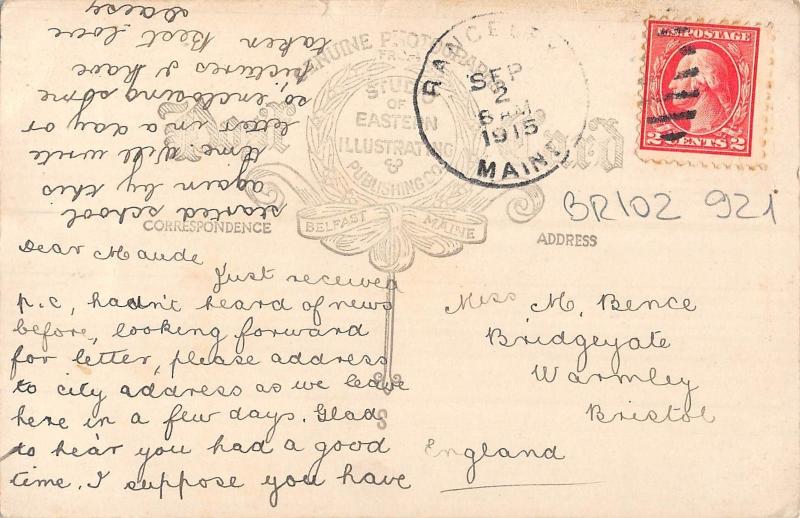 GENUINE PHOTOGRAPH
FROM
STUDIO
OF
EASTERN
ILLUSTRATING
&
PUBLISHING CO.
BELFAST MAINE
Post Card
CORRESPONDENCE
ADDRESS
MAINE
SEP
2
8 AM
1915
U.S. POSTAGE
2 CENTS 2
BR102 921
Dear Maude
Just received
p.c, hadn't heard of news
before, looking forward
for letter, please address
to city address as we leave
here in a few days. Glad
to hear you had a good
time. I suppose you have
started school
again by this
time. Will write
letter in a day or
so, enclosing some
pictures I have
taken Best love
Daisy
Miss M. Bence
Bridgeyate
Warmley
Bristol
England